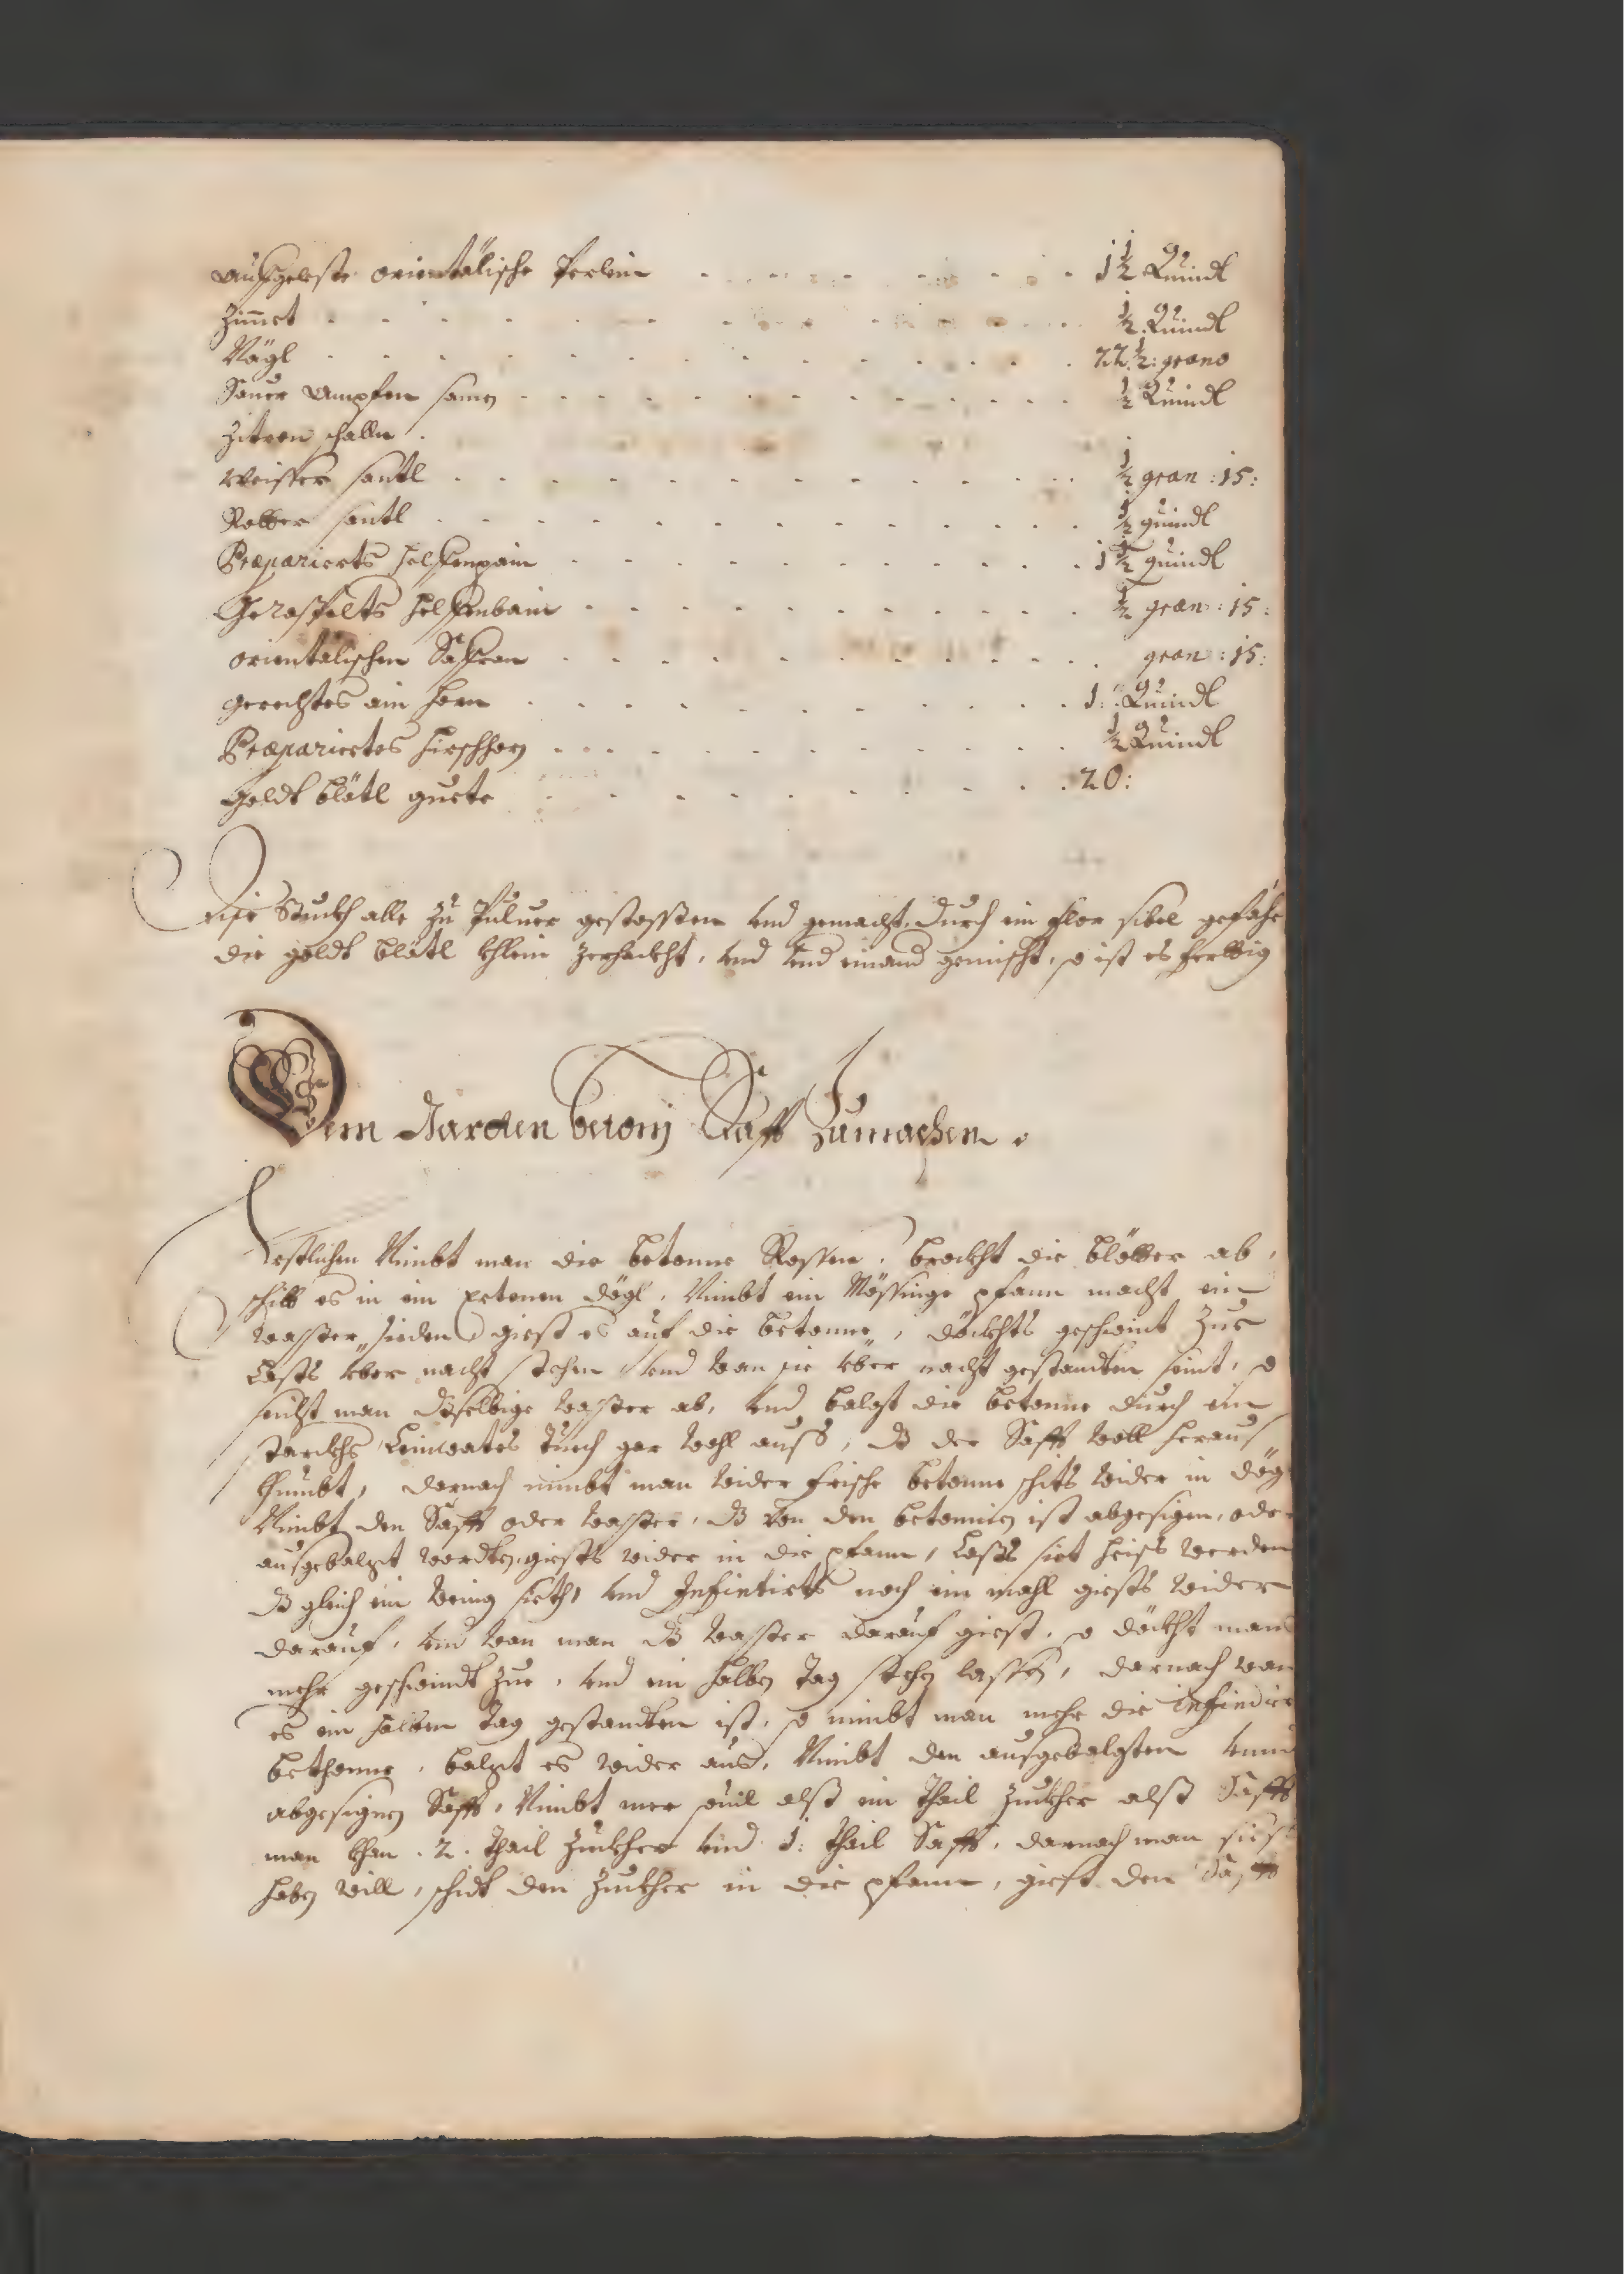 Außgeleste orientälische Perlein . . . . . . . 1½ Quindl
Zimmet . . . . . . . . . . ½ Quindl
Nägl . . . . . . . . . . 22½: grano
Sauer Ampfer samen . . . . . . . . . . ½ Quindl
Zitron schallen .
Weisser santl . . . . . . . . . . ½ gran :15:
Rotter santl . . . . . . . . . . ½ quindl
Præparierts helffenpain . . . . . . . . . . 1½ quindl
Geraspelts helffenbain . . . . . . . . . . ½ gran :15:
orientalischen Saffran . . . . . . . . . . gran :15:
gerechtes ain horn . . . . . . . . . . 1: Quindl
Præpariertes hirschhorn . . . . . . . . . . ½ Quindl
Goldt blätl guete . . . . . . . . . . 20:
Dise Stuckh alle zu Puluer gestossen vnd gemacht, durch ein flor sibel gefäht
die goldt blätl khlein zerhackht, vnd vnd einand gemischt, so ist es ferttig
Den Rarden betonj Safft Zumachen.
Erstlichen Nimbt man die betonne Rossen, brockht die blötter ab,
schitt es in ein ertenen dögl, Nimbt ein Mössinge pfann macht ein
wasser sieden giest es auf die betonne, döckhts geschwint Zue
Lasts vber nacht stehen vnd wan sie vber nacht gestandten seint, so
seicht man dasselbige wasser ab, vnd balgt die betonne durch ein
starckhs Leinwates Tuech gar wohl auss, dß der Safft woll heraus
khumbt, darnach nimbt man wider frische betonne schits wider in dögl
Nimbt den Safft oder wasser, dß von den betonnien ist abgesigen, oder
ausgebalgt wordten, giests wider in die pfann, Lasts siet heiss werden
dß gleich ein wenig sieth, vnd Infintirts noch ein mahl giests wider
darauf, vnd wan man dß wasser darauf giest, so döckht mans
mehr geschwindt Zue, vnd ein halben Tag stehen lassen, darnach wan
es ein halben Tag gestandten ist, so nimbt man mehr die infindier
bethonne, balgt es wider aus, Nimbt den ausgebalgten vnnd
abgesignen Safft, Nimbt mer souil alß ein Thail Zuckher alß Safft
man khan .2. thail Zuckher vnd 1: thail Safft, darnach man siess
haben will, schidt den Zuckher in die pfann, giest den Safft